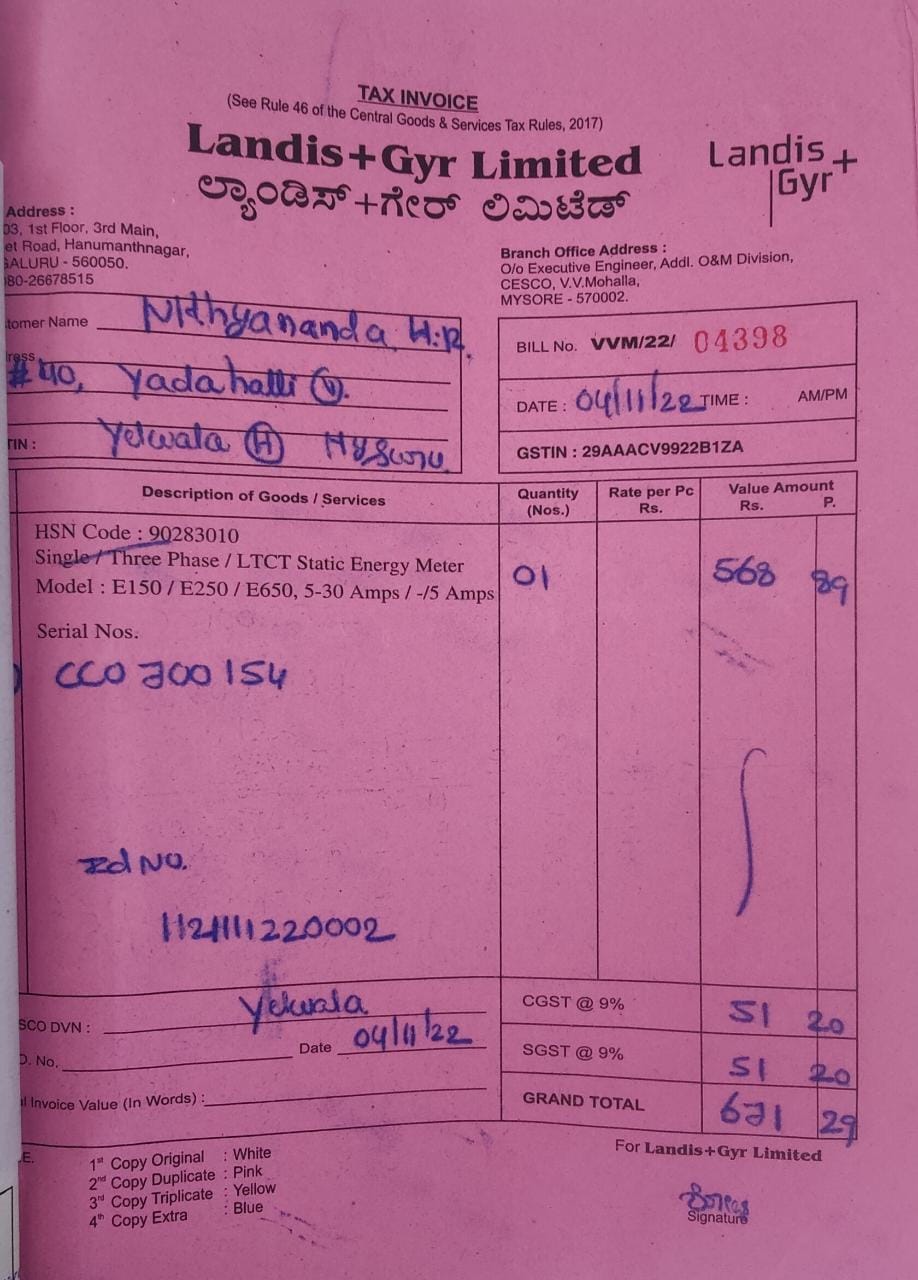 TAX INVOICE
(See Rule 46 of the Central Goods & Services Tax Rules, 2017)
Landis+Gyr Limited
ಲ್ಯಾಂಡಿಸ್+ಗೇರ್ ಲಿಮಿಟೆಡ್
Landis+
Gyr
Address :
03, 1st Floor, 3rd Main,
et Road, Hanumanthnagar,
GALURU - 560050.
080-26678515
Branch Office Address :
O/o Executive Engineer, Addl. O&M Division,
CESCO, V.V.Mohalla,
MYSORE - 570002.
tomer Name Nithyananda H.R.
ress
#40, Yadahalli (V).
TIN : Yelwala (H) Mysuru
BILL No. VVM/22/ 04398
DATE : 04/11/22 TIME : AM/PM
GSTIN : 29AAACV9922B1ZA
Description of Goods / Services Quantity (Nos.) Rate per Pc Rs. Value Amount Rs. P.
HSN Code : 90283010
Single / Three Phase / LTCT Static Energy Meter
Model : E150 / E250 / E650, 5-30 Amps / -/5 Amps 01 568 89
Serial Nos.
CCO 700154
Id No.
1121111220002
SCO DVN : Yelwala
O. No. Date 04/11/22
l Invoice Value (In Words) :
CGST @ 9% 51 20
SGST @ 9% 51 20
GRAND TOTAL 671 29
E.
1st Copy Original : White
2nd Copy Duplicate : Pink
3rd Copy Triplicate : Yellow
4th Copy Extra : Blue
For Landis+Gyr Limited
Signature